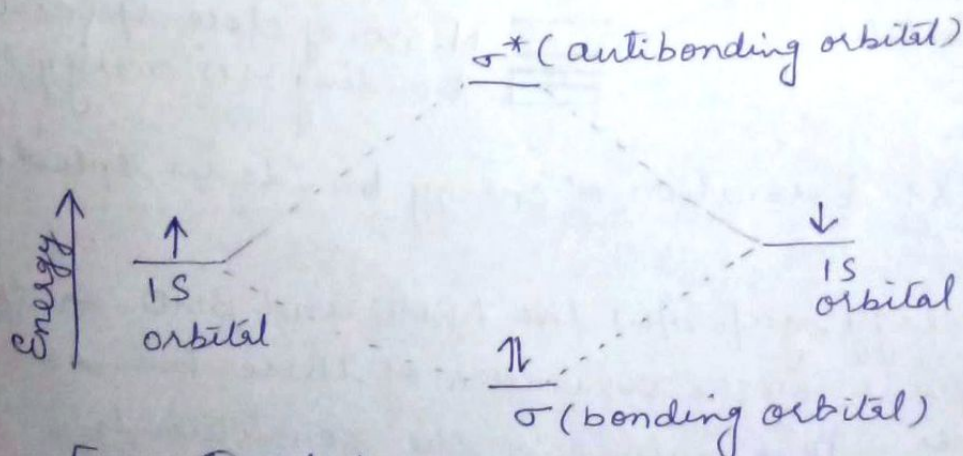 σ* (antibonding orbital)
Energy
↑
1S
orbital
↓
1S
orbital
⇅
σ (bonding orbital)